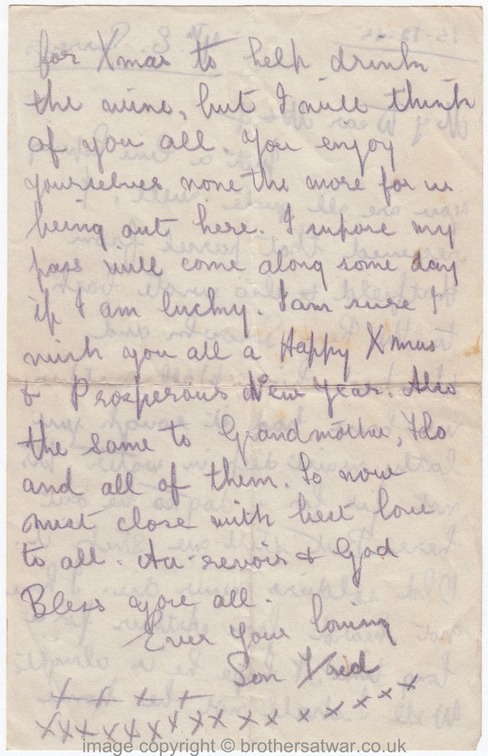 for Xmas to help drink
the wine, but I will think
of you all. You enjoy
yourselves none the more for us
being out here. I supose my
pass will come along some day
if I am lucky. I am sure I
wish you all a Happy Xmas
& Prosperous New Year. Also
the same to Grandmother,
and all of them. So now
must close with best love
to all. Au-revoir & God
Bless you all.
Ever your loving
Son
x x x x
x x x x x x x x x x x x x x x x
image copyright © brothersatwar.co.uk